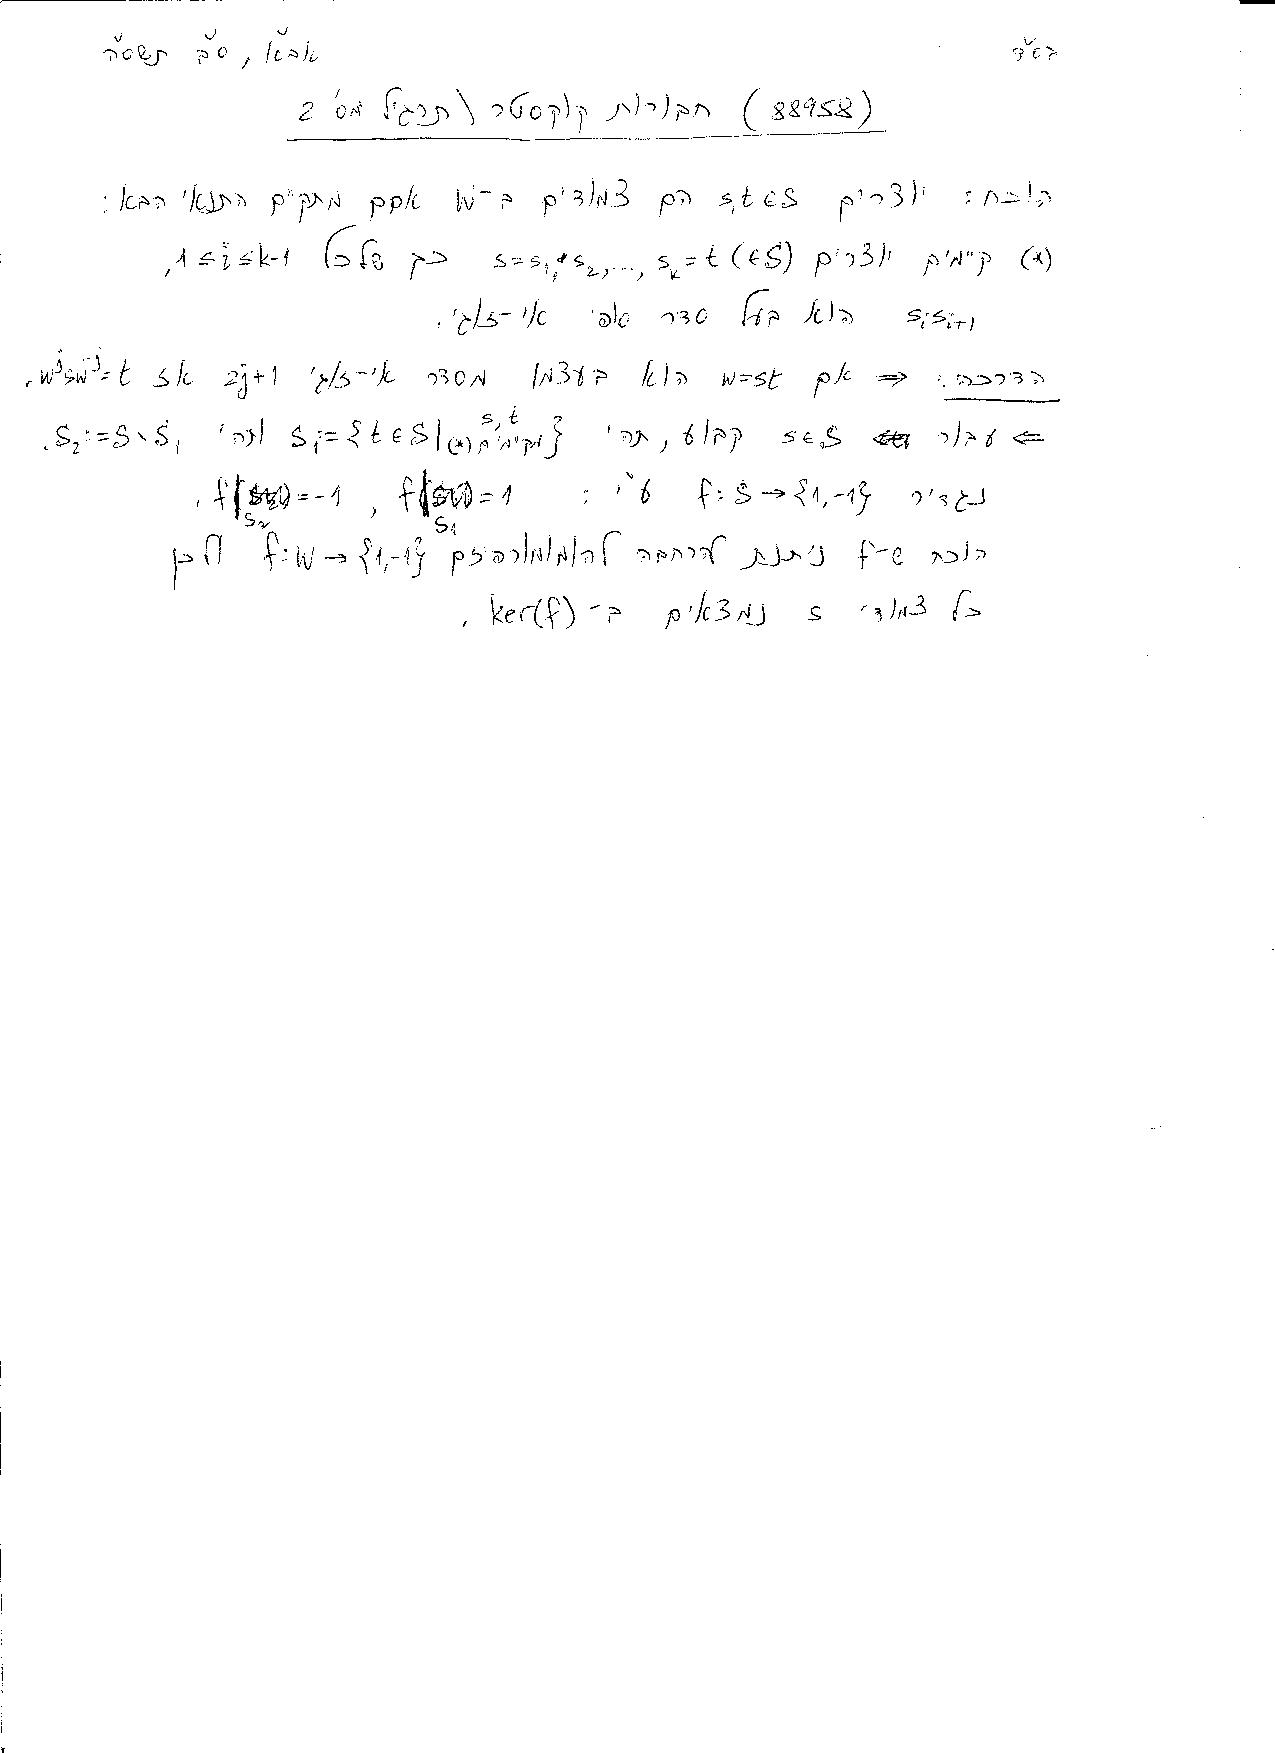 בס״ד
אב״א, ס״ב תשס״ה
חבורות קוקסטר \ תרגיל מס׳ 2 (88958)
הוכח: יוצרים s,t∈S הם צמודים ב-W אםם מתקיים התנאי הבא:
(*) קיימים יוצרים (∈S) s=s₁,s₂,...,sₖ=t כך שלכל 1≤i≤k-1,
sᵢsᵢ₊₁ הוא בעל סדר סופי אי-זוגי.
הדרכה: ⇐ אם w=st הוא בעצמו מסדר אי-זוגי 2j+1 אז wʲsw⁻ʲ=t.
⇒ עבור s∈S קבוע, תהי S₁:={t∈S| s,t מקיימים (*)} ותהי S₂:=S\S₁.
נגדיר f:S→{1,-1} ע״י: f|S₁=1, f|S₂=-1.
הוכח ש-f ניתנת להרחבה להומומורפיזם f:W→{1,-1} ולכן
כל צמודי s נמצאים ב-ker(f).